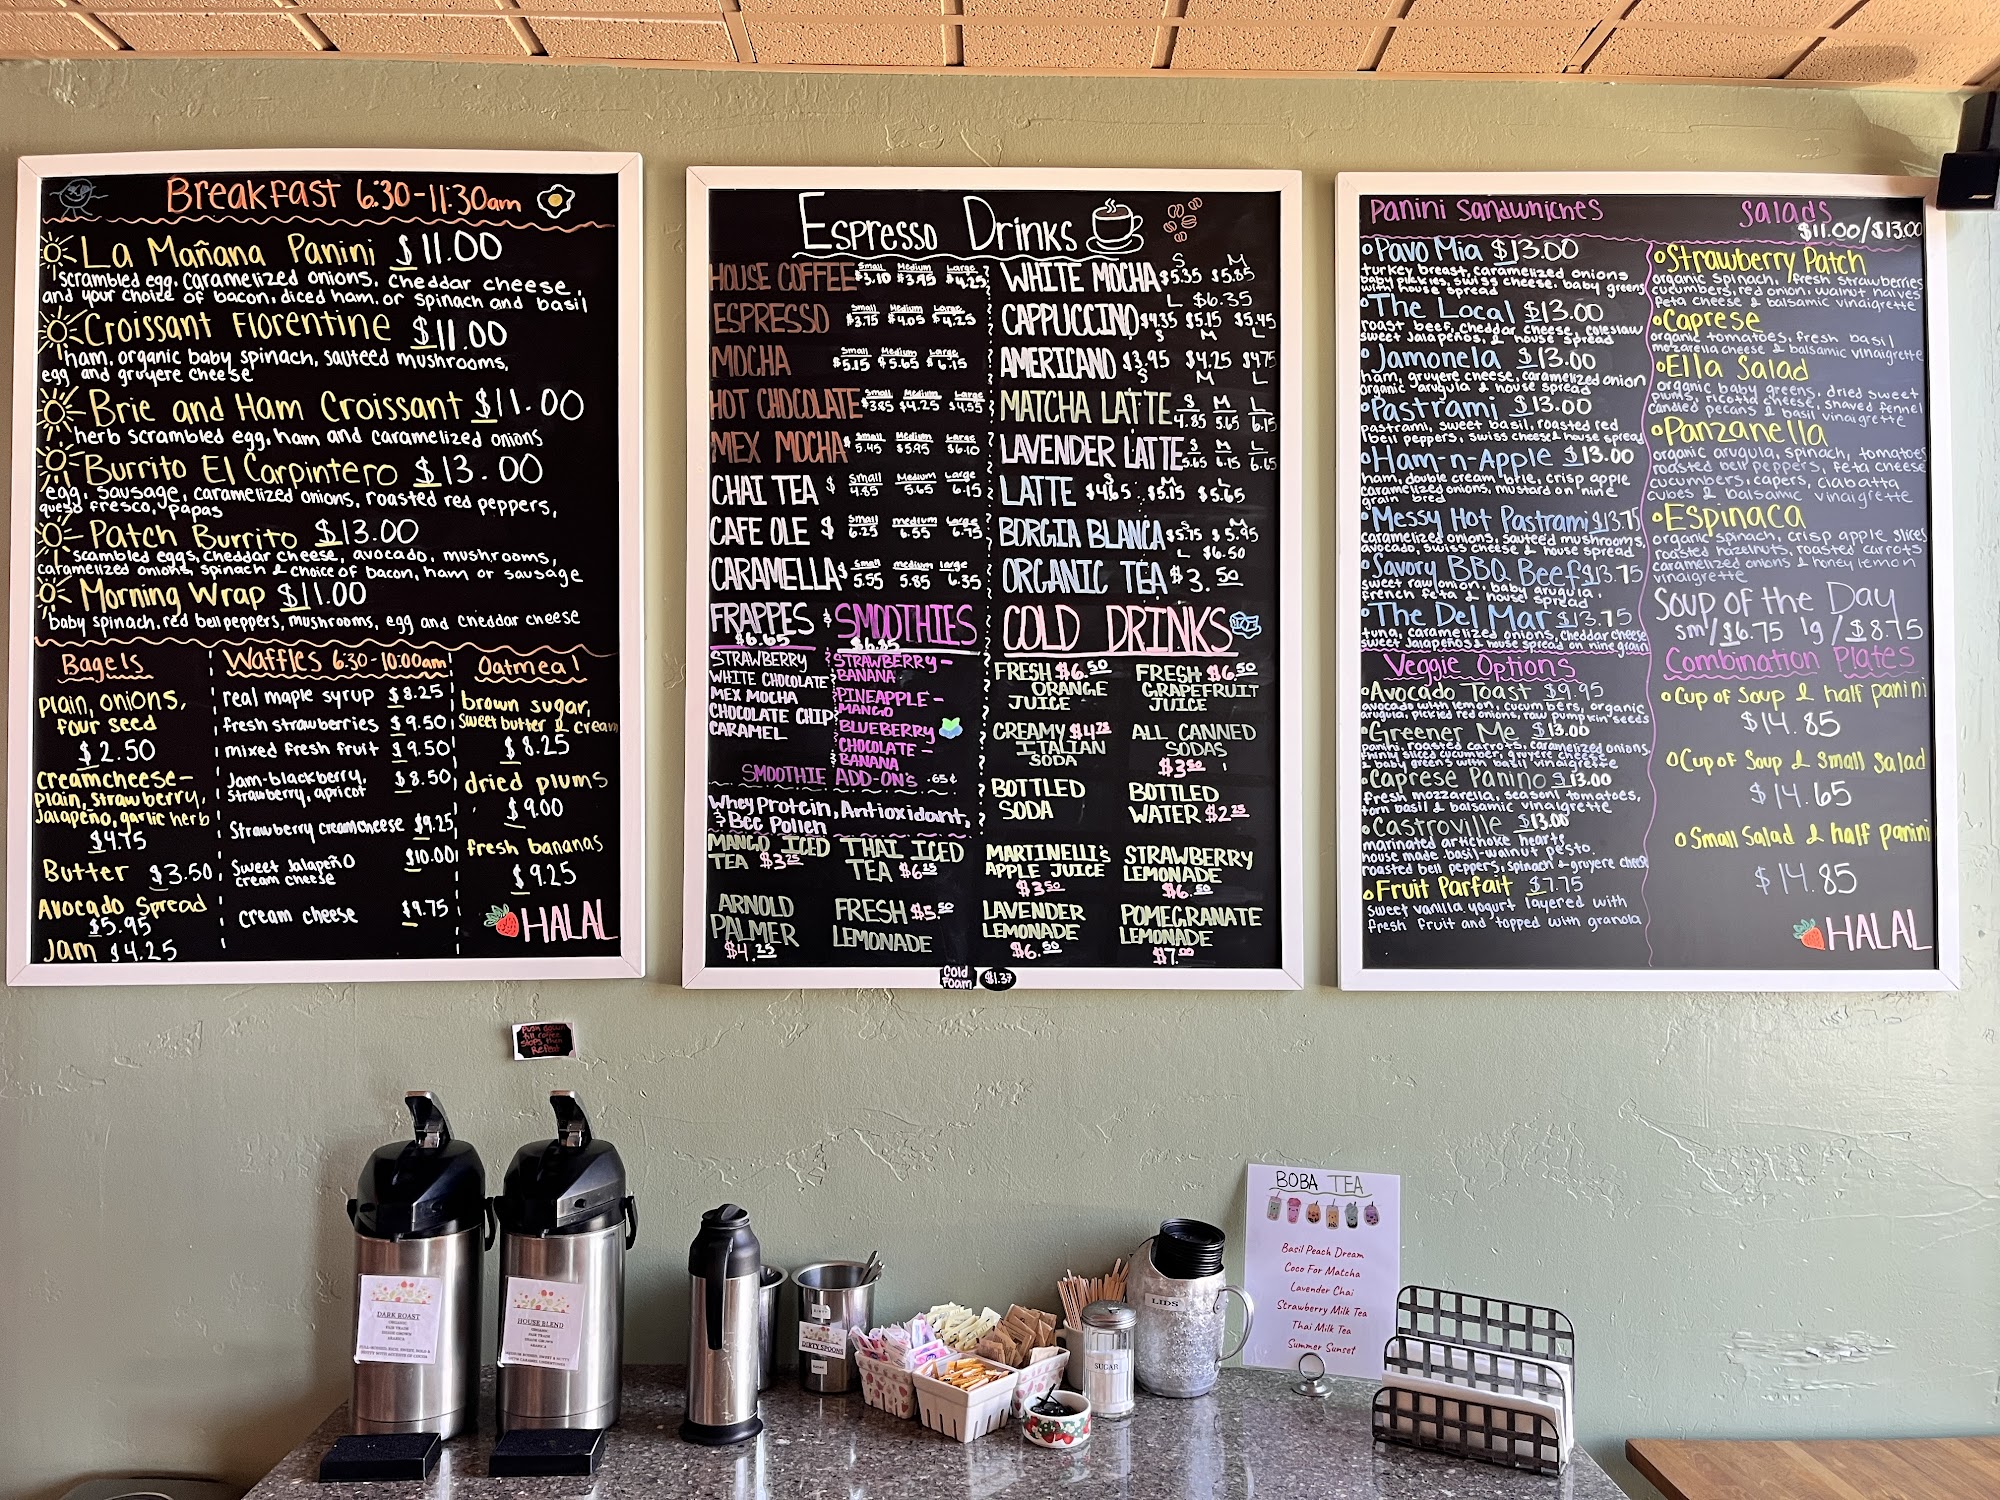 Breakfast 6:30-11:30am
La Mañana Panini $11.00
scrambled egg, caramelized onions, cheddar cheese,
and your choice of bacon, diced ham, or spinach and basil
Croissant Florentine $11.00
ham, organic baby spinach, sauteed mushrooms,
egg and gruyere cheese
Brie and Ham Croissant $11.00
herb scrambled egg, ham and caramelized onions
Burrito El Carpintero $13.00
egg, sausage, caramelized onions, roasted red peppers,
queso fresco, papas
Patch Burrito $13.00
scambled eggs, cheddar cheese, avocado, mushrooms,
caramelized onions, spinach & choice of bacon, ham or sausage
Morning Wrap $11.00
baby spinach, red bell peppers, mushrooms, egg and cheddar cheese
Bagels
plain, onions,
four seed
$2.50
creamcheese-
plain, strawberry,
Jalapeño, garlic herb
$4.75
Butter $3.50
Avocado Spread
$5.95
Jam $4.25
Waffles 6:30-10:00am
real maple syrup $8.25
fresh strawberries $9.50
mixed fresh fruit $9.50
Jam-blackberry,
strawberry, apricot $8.50
Strawberry creamcheese $9.25
Sweet Jalapeño
cream cheese $10.00
cream cheese $9.75
Oatmeal
brown sugar,
sweet butter & cream
$8.25
dried plums
$9.00
fresh bananas
$9.25
HALAL
Espresso Drinks
HOUSE COFFEE Small $3.10 Medium $3.95 Large $4.25
ESPRESSO Small $3.75 Medium $4.05 Large $4.25
MOCHA Small $5.15 Medium $5.65 Large $6.15
HOT CHOCOLATE Small $3.85 Medium $4.25 Large $4.55
MEX MOCHA $ Small 5.45 Medium $5.95 Large $6.10
CHAI TEA $ Small 4.85 Medium 5.65 Large 6.15
CAFE OLE $ Small 6.25 medium 6.55 Large 6.75
CARAMELLA $ Small 5.55 medium 5.85 large 6.35
WHITE MOCHA S $5.35 M $5.85
L $6.35
CAPPUCCINO $4.35 $5.15 $5.45
S M L
AMERICANO $3.95 $4.25 $4.75
S M L
MATCHA LATTE S 4.85 M 5.65 L 6.15
LAVENDER LATTE S 5.65 M 6.15 L 6.65
LATTE S $4.65 M $5.15 L $5.65
BORGIA BLANCA S $5.75 M $5.95
L $6.50
ORGANIC TEA $3.50
FRAPPES
$6.65
STRAWBERRY
WHITE CHOCOLATE
MEX MOCHA
CHOCOLATE CHIP
CARAMEL
& SMOOTHIES
$6.85
STRAWBERRY-
BANANA
PINEAPPLE-
MANGO
BLUEBERRY
CHOCOLATE-
BANANA
SMOOTHIE ADD-ON's .65¢
Whey Protein, Antioxidant,
& Bee Pollen
MANGO ICED
TEA $3.25
THAI ICED
TEA $6.25
ARNOLD
PALMER
$4.25
FRESH $5.50
LEMONADE
COLD DRINKS
FRESH $6.50
ORANGE
JUICE
FRESH $6.50
GRAPEFRUIT
JUICE
CREAMY $4.75
ITALIAN
SODA
ALL CANNED
SODAS
$3.50
BOTTLED
SODA
BOTTLED
WATER $2.25
MARTINELLI's
APPLE JUICE
$3.50
STRAWBERRY
LEMONADE
$6.50
LAVENDER
LEMONADE
$6.50
POMEGRANATE
LEMONADE
$7.00
Cold
Foam $1.37
Panini Sandwhiches
Pavo Mia $13.00
turkey breast, caramelized onions
baby pickles, swiss cheese, baby greens
with house spread
The Local $13.00
roast beef, cheddar cheese, coleslaw
sweet Jalapeños, & house spread
Jamonela $13.00
ham, gruyere cheese, caramelized onion
organic arugula & house spread
Pastrami $13.00
pastrami, sweet basil, roasted red
bell peppers, swiss cheese & house spread
Ham-n-Apple $13.00
ham, double cream brie, crisp apple
caramelized onions, mustard on nine
grain bred
Messy Hot Pastrami $13.75
caramelized onions, sauteed mushrooms,
avocado, swiss cheese & house spread
Savory BBQ Beef $13.75
sweet raw onion, baby arugula,
french feta & house spread
The Del Mar $13.75
tuna, caramelized onions, cheddar cheese
sweet Jalapeños & house spread on nine grain
Veggie Options
Avocado Toast $9.95
avocado with lemon, cucumbers, organic
arugula, pickled red onions, raw pumpkin seeds
Greener Me $13.00
panini, roasted carrots, caramelized onions,
thinly sliced cucumber, gruyere cheese
& baby greens with basil vinaigrette
Caprese Panino $13.00
fresh mozzarella, seasonl tomatoes,
torn basil & balsamic vinaigrette
Castroville $13.00
marinated artichoke hearts,
house made basil-walnut pesto,
roasted bell peppers, spinach & gruyere cheese
Fruit Parfait $7.75
sweet vanilla yogurt layered with
fresh fruit and topped with granola
Salads
$11.00/$13.00
Strawberry Patch
organic spinach, fresh strawberries
cucumbers, red onion, walnut halves
feta cheese & balsamic vinaigrette
Caprese
organic tomatoes, fresh basil
mozarella cheese & balsamic vinaigrette
Ella Salad
organic baby greens, dried sweet
plums, ricotta cheese, shaved fennel
candied pecans & basil vinaigrette
Panzanella
organic arugula, spinach, tomatoes
roasted bell peppers, feta cheese
cucumbers, capers, ciabatta
cubes & balsamic vinaigrette
Espinaca
organic spinach, crisp apple slices
roasted hazelnuts, roasted carrots
caramelized onions & honey lemon
vinaigrette
Soup of the Day
sm/$6.75 lg/$8.75
Combination Plates
Cup of Soup & half panini
$14.85
Cup of Soup & small salad
$14.65
Small Salad & half panini
$14.85
HALAL
Push down
till coffee
stops then
Repeat
DARK ROAST
ORGANIC
FAIR TRADE
SHADE GROWN
ARABICA
HOUSE BLEND
ORGANIC
FAIR TRADE
SHADE GROWN
ARABICA
DIRTY SPOONS
SUGAR
LIDS
BOBA TEA
Basil Peach Dream
Coco For Matcha
Lavender Chai
Strawberry Milk Tea
Thai Milk Tea
Summer Sunset